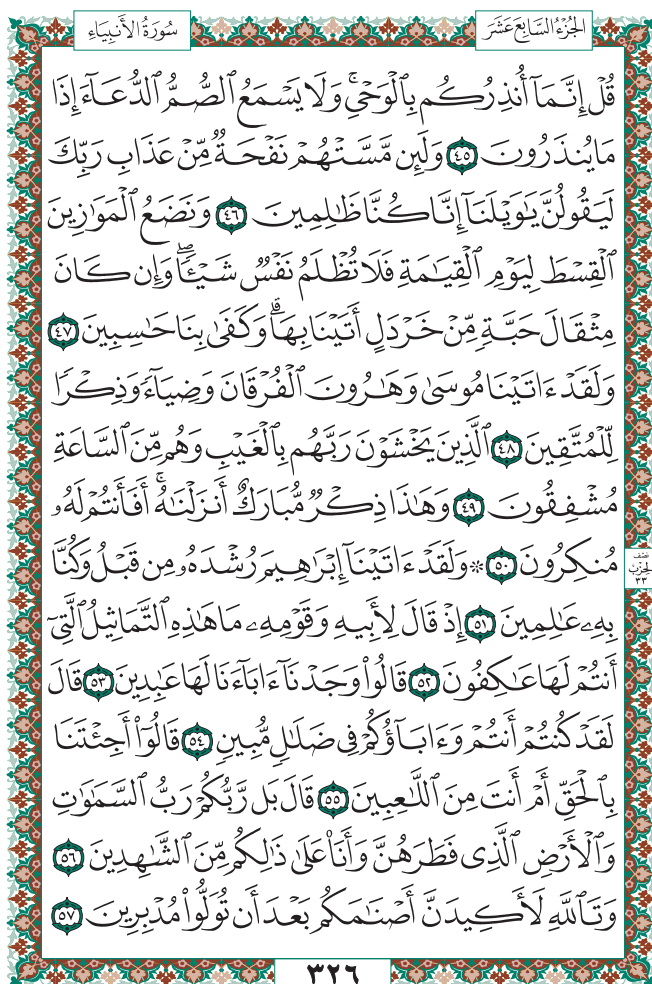 الجُزْءُ السَّابِعَ عَشَرَ
سُورَةُ الأَنبِيَاءِ
قُلْ إِنَّمَآ أُنذِرُكُم بِٱلْوَحْىِۚ وَلَا يَسْمَعُ ٱلصُّمُّ ٱلدُّعَآءَ إِذَا
مَا يُنذَرُونَ ٤٥ وَلَئِن مَّسَّتْهُمْ نَفْحَةٌ مِّنْ عَذَابِ رَبِّكَ
لَيَقُولُنَّ يَٰوَيْلَنَآ إِنَّا كُنَّا ظَٰلِمِينَ ٤٦ وَنَضَعُ ٱلْمَوَٰزِينَ
ٱلْقِسْطَ لِيَوْمِ ٱلْقِيَٰمَةِ فَلَا تُظْلَمُ نَفْسٌ شَيْـًٔاۖ وَإِن كَانَ
مِثْقَالَ حَبَّةٍ مِّنْ خَرْدَلٍ أَتَيْنَا بِهَاۗ وَكَفَىٰ بِنَا حَٰسِبِينَ ٤٧
وَلَقَدْ ءَاتَيْنَا مُوسَىٰ وَهَٰرُونَ ٱلْفُرْقَانَ وَضِيَآءً وَذِكْرًا
لِّلْمُتَّقِينَ ٤٨ ٱلَّذِينَ يَخْشَوْنَ رَبَّهُم بِٱلْغَيْبِ وَهُم مِّنَ ٱلسَّاعَةِ
مُشْفِقُونَ ٤٩ وَهَٰذَا ذِكْرٌ مُّبَارَكٌ أَنزَلْنَٰهُۚ أَفَأَنتُمْ لَهُۥ
مُنكِرُونَ ٥٠ ۞ وَلَقَدْ ءَاتَيْنَآ إِبْرَٰهِيمَ رُشْدَهُۥ مِن قَبْلُ وَكُنَّا
نِصْف
الحِزْب
٣٣
بِهِۦ عَٰلِمِينَ ٥١ إِذْ قَالَ لِأَبِيهِ وَقَوْمِهِۦ مَا هَٰذِهِ ٱلتَّمَاثِيلُ ٱلَّتِىٓ
أَنتُمْ لَهَا عَٰكِفُونَ ٥٢ قَالُوا۟ وَجَدْنَآ ءَابَآءَنَا لَهَا عَٰبِدِينَ ٥٣ قَالَ
لَقَدْ كُنتُمْ أَنتُمْ وَءَابَآؤُكُمْ فِى ضَلَٰلٍ مُّبِينٍ ٥٤ قَالُوٓا۟ أَجِئْتَنَا
بِٱلْحَقِّ أَمْ أَنتَ مِنَ ٱللَّٰعِبِينَ ٥٥ قَالَ بَل رَّبُّكُمْ رَبُّ ٱلسَّمَٰوَٰتِ
وَٱلْأَرْضِ ٱلَّذِى فَطَرَهُنَّ وَأَنَا۠ عَلَىٰ ذَٰلِكُم مِّنَ ٱلشَّٰهِدِينَ ٥٦
وَتَٱللَّهِ لَأَكِيدَنَّ أَصْنَٰمَكُم بَعْدَ أَن تُوَلُّوا۟ مُدْبِرِينَ ٥٧
٣٢٦